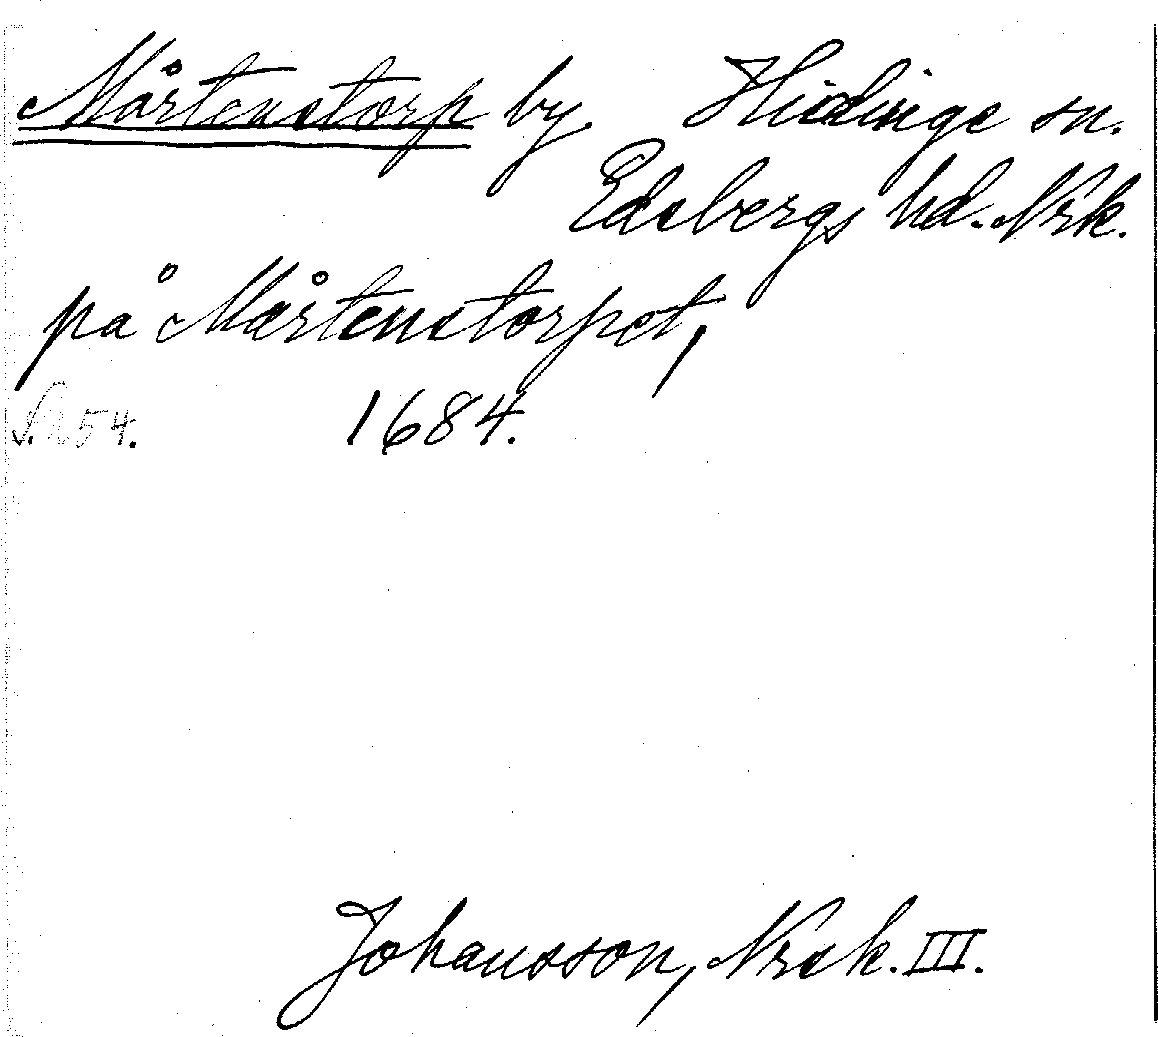 Mårtenstorp by. Hidinge sn.
Edsbergs hd. Nrk.
på Mårtenstorpet,
S. 254. 1684.
Johansson, Nrsk. III.